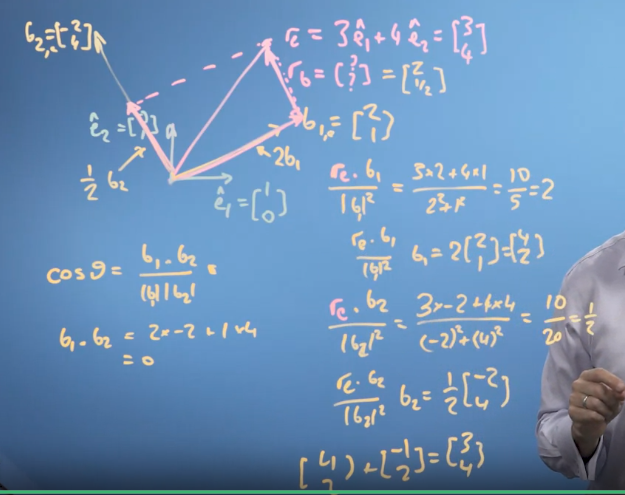 b₂,ₑ = [-2 4]
rₑ = 3ê₁ + 4ê₂ = [3 4]
r_b = [? ?] = [2 1/2]
b₁,ₑ = [2 1]
ê₂ = [
2b₁
1/2 b₂
ê₁ = [1 0]
rₑ · b₁ / |b₁|² = 3×2 + 4×1 / 2² + 1² = 10/5 = 2
rₑ · b₁ / |b₁|² b₁ = 2 [2 1] = [4 2]
cos θ = b₁ · b₂ / |b₁| |b₂| =
b₁ · b₂ = 2×-2 + 1×4
= 0
rₑ · b₂ / |b₂|² = 3×-2 + 4×4 / (-2)² + (4)² = 10/20 = 1/2
rₑ · b₂ / |b₂|² b₂ = 1/2 [-2 4]
[4 2] + [-1 2] = [3 4]